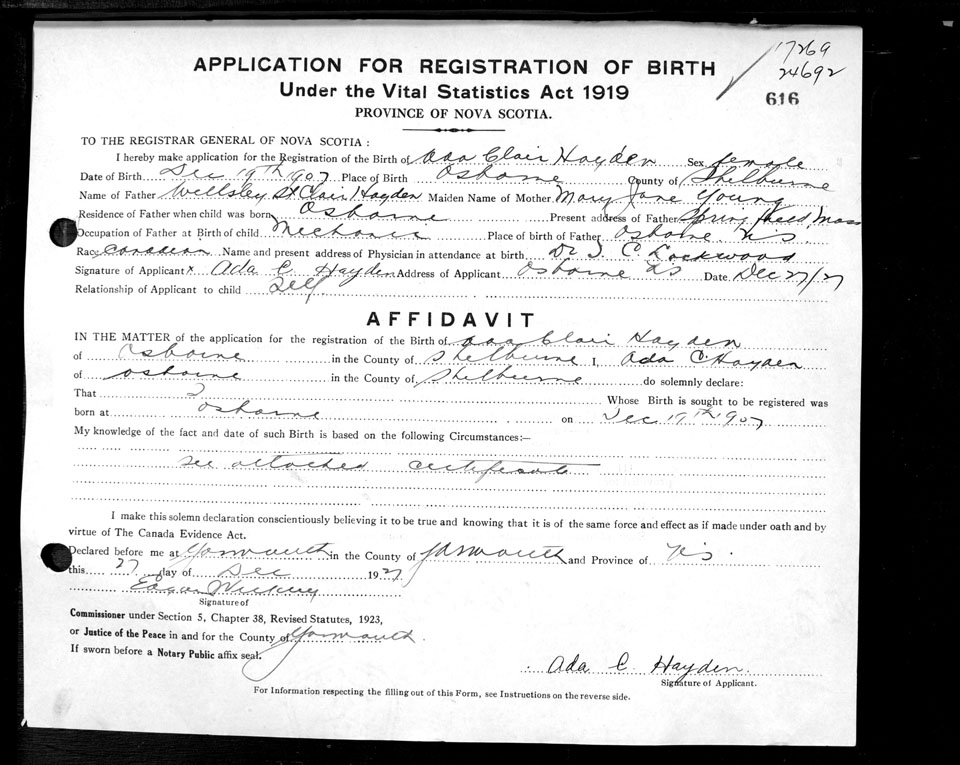 17269
24692
616
APPLICATION FOR REGISTRATION OF BIRTH
Under the Vital Statistics Act 1919
PROVINCE OF NOVA SCOTIA.
TO THE REGISTRAR GENERAL OF NOVA SCOTIA :
I hereby make application for the Registration of the Birth of Ada Clair Hayden Sex female
Date of Birth Dec 19th 1907 Place of Birth Osborne County of Shelburne
Name of Father Wellsley St Clair Hayden Maiden Name of Mother Mary Jane Young
Residence of Father when child was born Osborne Present address of Father Spring field Mass
Occupation of Father at Birth of child Mechanic Place of birth of Father Osborne N.S.
Race Canadian Name and present address of Physician in attendance at birth Dr. J. C. Lockwood
Signature of Applicant x Ada C Hayden Address of Applicant Osborne NS Date Dec 27/27
Relationship of Applicant to child Self
AFFIDAVIT
IN THE MATTER of the application for the registration of the Birth of Ada Clair Hayden
of Osborne in the County of Shelburne I, Ada C. Hayden
of Osborne in the County of Shelburne do solemnly declare:
That I Whose Birth is sought to be registered was
born at Osborne on Dec. 19th 1907
My knowledge of the fact and date of such Birth is based on the following Circumstances:—
see attached certificate
I make this solemn declaration conscientiously believing it to be true and knowing that it is of the same force and effect as if made under oath and by
virtue of The Canada Evidence Act.
Declared before me at Yarmouth in the County of Yarmouth and Province of N.S.
this 27 day of Dec 1927
Edgar
Signature of
Commissioner under Section 5, Chapter 38, Revised Statutes, 1923,
or Justice of the Peace in and for the County of Yarmouth.
If sworn before a Notary Public affix seal.
Ada C. Hayden.
Signature of Applicant.
For Information respecting the filling out of this Form, see Instructions on the reverse side.